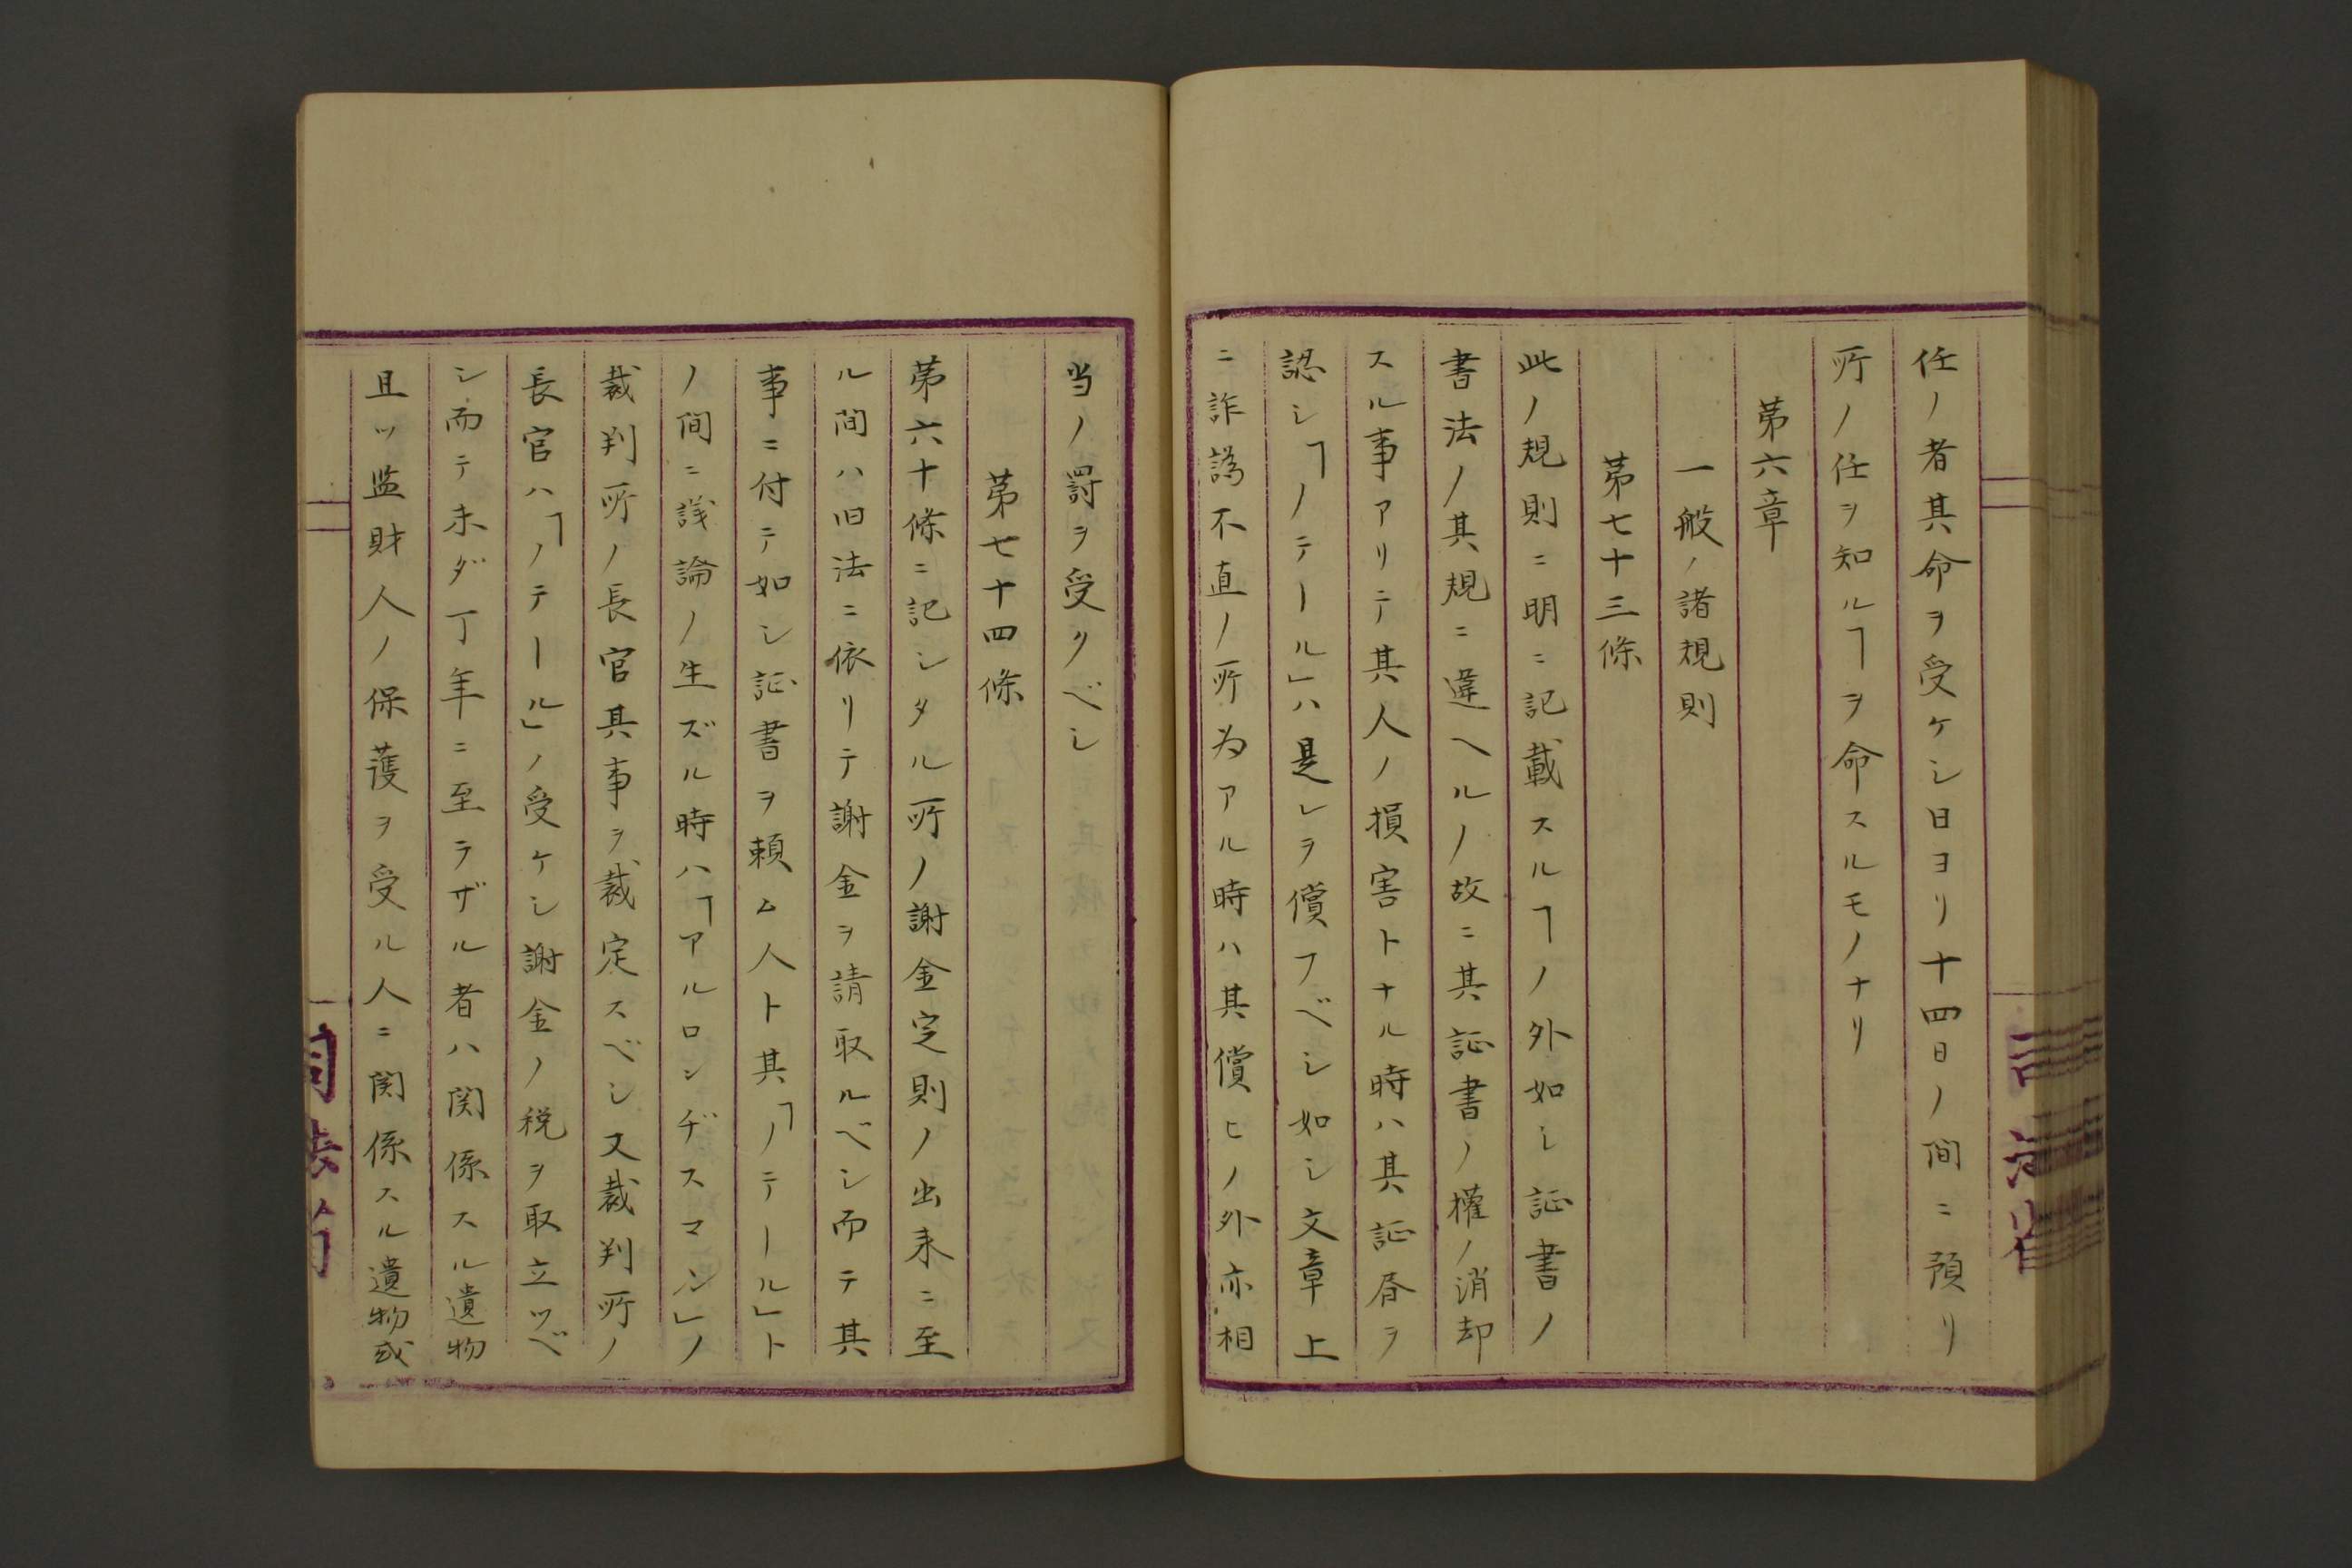 任ノ者其命ヲ受ケシ日ヨリ十四日ノ間ニ預リ
所ノ任ヲ知ルヿヲ命スルモノナリ
第六章
一般ノ諸規則
第七十三條
此ノ規則ニ明ニ記載スルヿノ外如シ証書ノ
書法ノ其規ニ違ヘルノ故ニ其証書ノ權ノ消却
スル事アリテ其人ノ損害トナル時ハ其証書ヲ
認シ「ノテール」ハ是レヲ償フベシ如シ文章上
ニ詐譌不直ノ所为アル時ハ其償ヒノ外亦相
当ノ罰ヲ受クベシ
第七十四條
第六十條ニ記シタル所ノ謝金定則ノ出来ニ至
ル間ハ旧法ニ依リテ謝金ヲ請取ルベシ而テ其
事ニ付テ如シ証書ヲ頼ム人ト其「ノテール」ト
ノ間ニ議論ノ生ズル時ハ「アルロンヂスマン」ノ
裁判所ノ長官其事ヲ裁定スベシ又裁判所ノ
長官ハ「ノテール」ノ受ケシ謝金ノ税ヲ取立ツベ
シ而テ未ダ丁年ニ至ラザル者ハ関係スル遺物
且ツ監財人ノ保護ヲ受ル人ニ関係スル遺物或
司法省